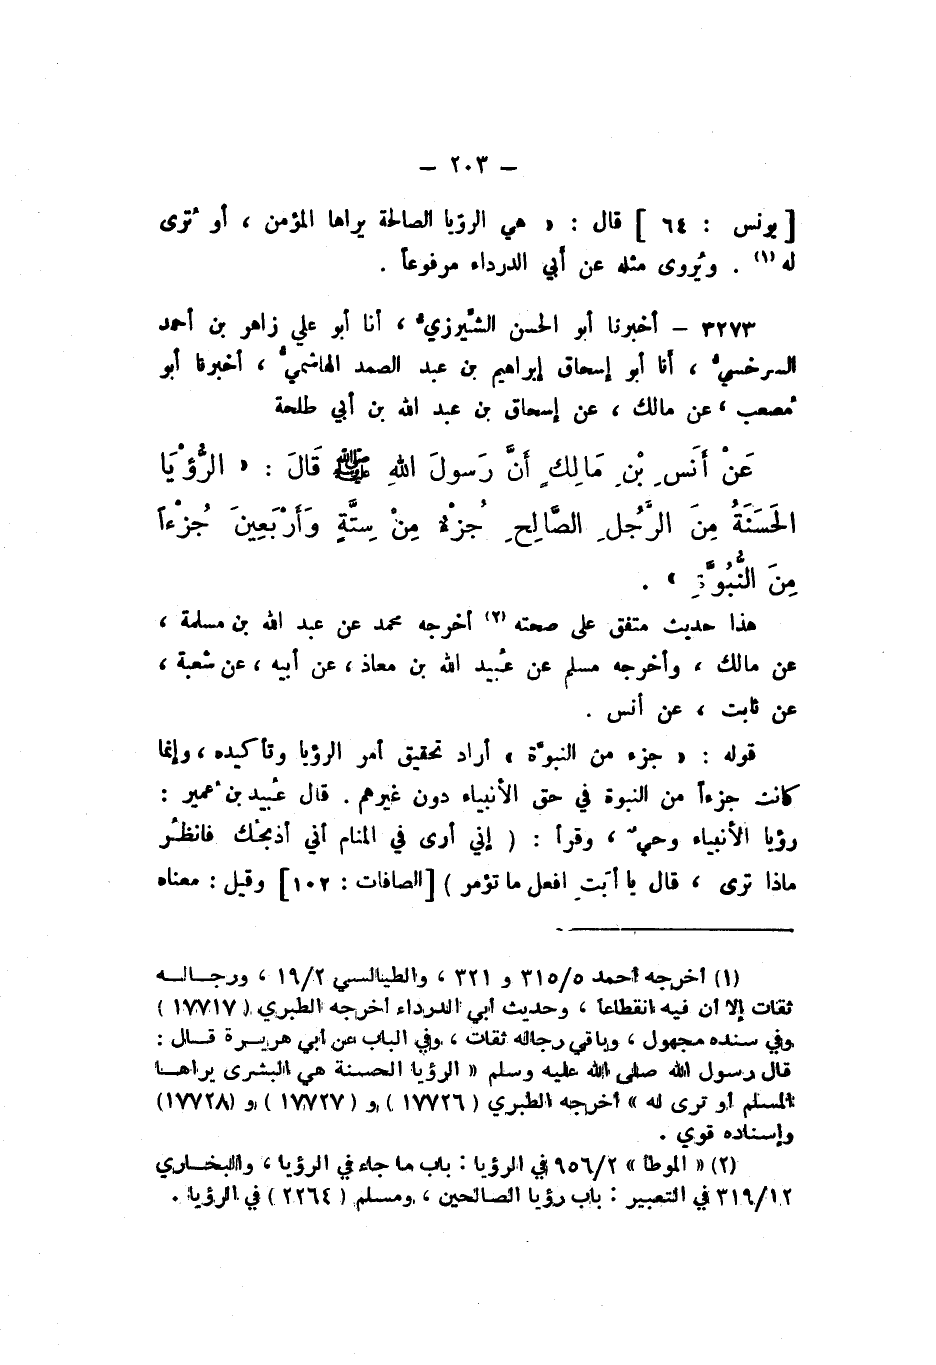 — ٢٠٣ —
[ يونس : ٦٤ ] قال : « هي الرؤيا الصالحة يراها المؤمن ، أو تُرى
له (١) . ويُروى مثله عن أبي الدرداء مرفوعاً .
٣٢٧٣ – أخبرنا أبو الحسن الشَّيرزيُّ ، أنا أبو علي زاهر بن أحمد
السرخسيُّ ، أنا أبو إسحاق إبراهيم بن عبد الصمد الهاشميُّ ، أخبرنا أبو
مُصعب ، عن مالك ، عن إسحاق بن عبد الله بن أبي طلحة
عَنْ أَنَسِ بْنِ مَالِكٍ أَنَّ رَسولَ اللهِ ﷺ قَالَ : « الرُّؤْيَا
الحَسَنَةُ مِنَ الرَّجُلِ الصَّالِحِ جُزْءٌ مِنْ سِتَّةٍ وَأَرْبَعِينَ جُزْءاً
مِنَ النُّبُوَّةِ » .
هذا حديث متفق على صحته (٢) أخرجه محمد عن عبد الله بن مسلمة ،
عن مالك ، وأخرجه مسلم عن عُبيد الله بن معاذ ، عن أبيه ، عن شعبة ،
عن ثابت ، عن أنس .
قوله : « جزء من النبوَّة » أراد تحقيق أمر الرؤيا وتأكيده ، وإنما
كانت جزءاً من النبوة في حق الأنبياء دون غيرهم . قال عُبيد بن عُمير :
رؤيا الأنبياء وحيٌ ، وقرأ : ( إني أرى في المنام أني أذبحُك فانظُر
ماذا ترى ، قال يا أبتِ افعل ما تؤمر ) [ الصافات : ١٠٢ ] وقيل : معناه
(١) أخرجه أحمد ٣١٥/٥ و ٣٢١ ، والطيالسي ١٩/٢ ، ورجالـه
ثقات إلا أن فيه انقطاعاً ، وحديث أبي الدرداء أخرجه الطبري ( ١٧٧١٧ )
وفي سنده مجهول ، وباقي رجاله ثقات ، وفي الباب عن أبي هريرة قـال :
قال رسول الله صلى الله عليه وسلم « الرؤيا الحسنة هي البشرى يراهـا
المسلم أو ترى له » أخرجه الطبري ( ١٧٧٢٦ ) و ( ١٧٧٢٧ ) و (١٧٧٢٨)
وإسناده قوي .
(٢) « الموطأ » ٩٥٦/٢ في الرؤيا : باب ما جاء في الرؤيا ، والبخـاري
٣١٩/١٢ في التعبير : باب رؤيا الصالحين ، ومسلم ( ٢٢٦٤ ) في الرؤيا .